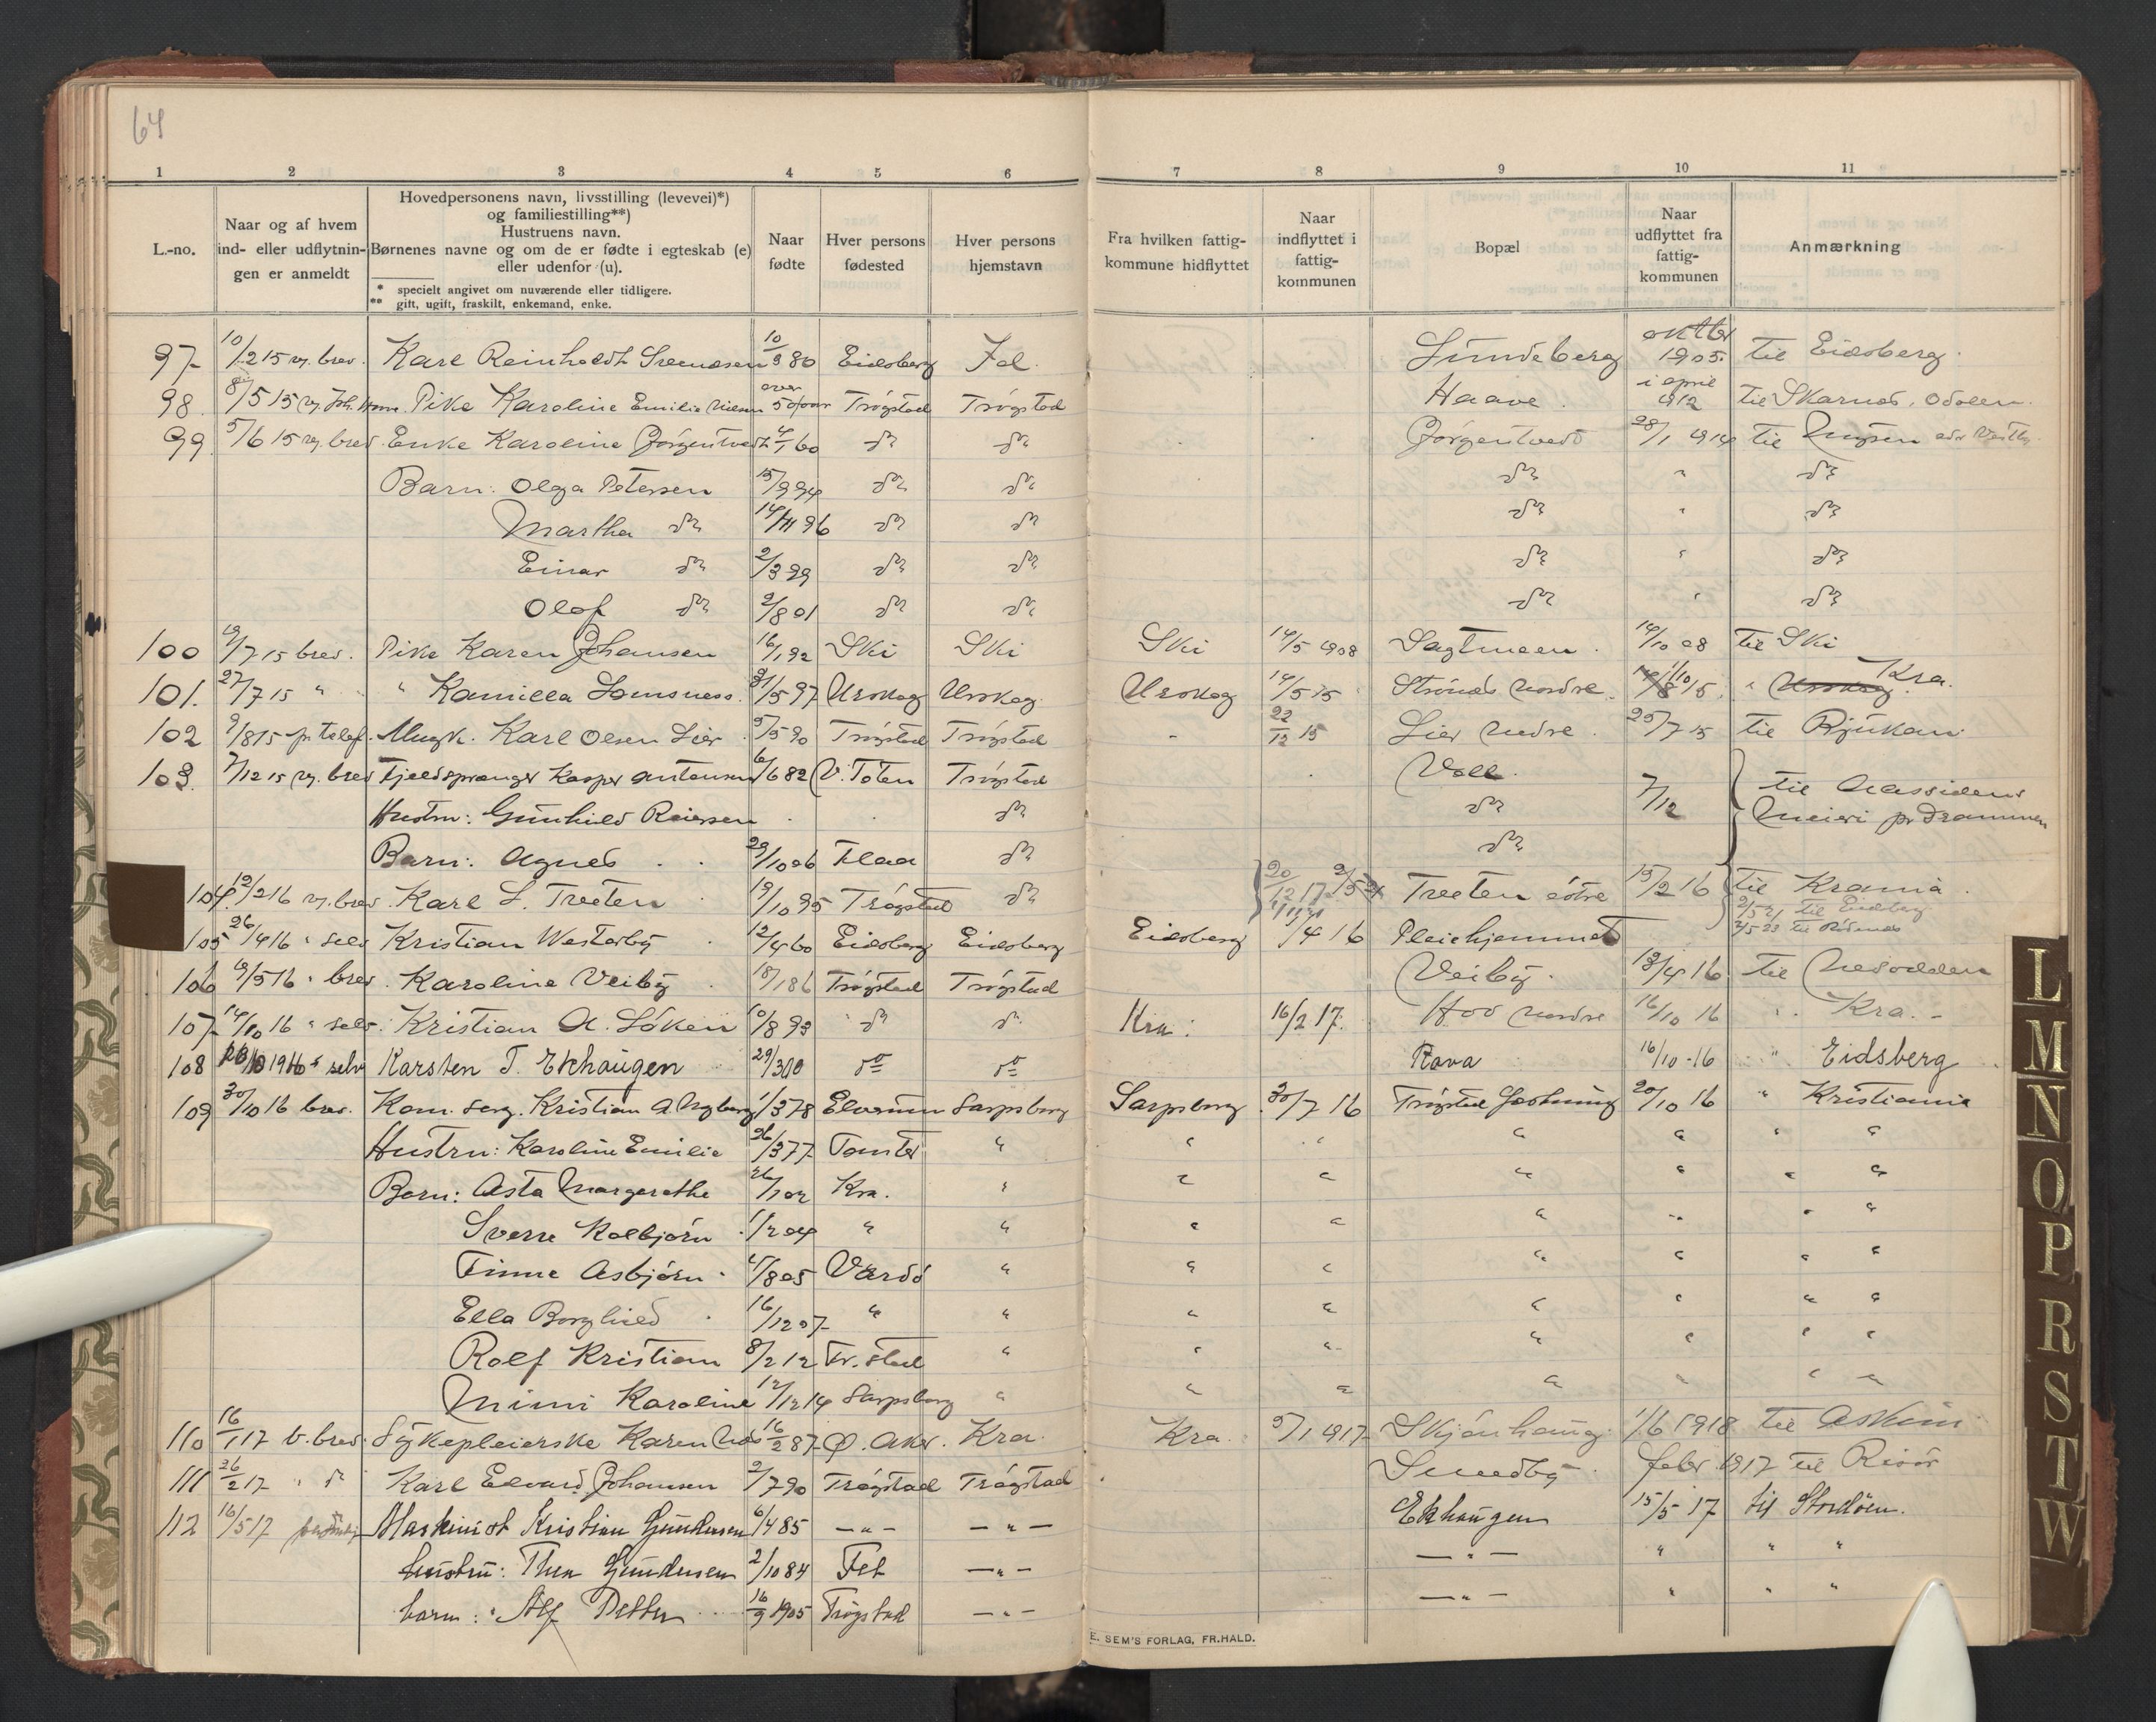 64
1 2 3 4 5 6 7 8 9 10 11
L.-no. Naar og af hvem ind- eller udflytningen er anmeldt
Hovedpersonens navn, livsstilling (levevei)*) og familiestilling**) Hustruens navn. Børnenes navne og om de er fødte i egteskab (e) eller udenfor (u).
* specielt angivet om nuværende eller tidligere.
** gift, ugift, fraskilt, enkemand, enke.
Naar fødte Hver persons fødested Hver persons hjemstavn Fra hvilken fattigkommune hidflyttet Naar indflyttet i fattigkommunen Bopæl Naar udflyttet fra fattigkommunen Anmærkning
97 10/2 15 v. brev. Karl Reinholdt Svendsen 10/8 80 Eidsberg Lundeberg 1905. til Eidsberg
98. 8/5 15 Pike Karoline Emilie over 50 aar Trøgstad Trøgstad Haave. i april 1912 til Skarnes, Odalen.
99. 5/6 15 v. brev. Enke Karoline Gørgentvedt 4/1 60 do do Gørgentvedt 28/1 1914 til
Barn: Olga Petersen 15/9 94 do do do " do
Martha do 14/11 96 do do do " do
Einar do 2/3 99 do do do " do
Olaf do 2/8 01 do do do " do
100 19/7 15 brev. Pike Karen Johansen 16/1 92 Ski Ski Ski 14/5 1908 14/10 08 til Ski
101. 27/7 15 " " Kamilla 97 Urskog Urskog. Urskog 14/5 15 Strønes nordre. 1/10 15. " Urskog Kra.
102 9/8 15 pr telef. Ungk. Karl Olsen Lier 5/5 90 Trøgstad Trøgstad - 22/12 15 Lier nedre. 25/7 15 til Rjukan
103. 7/12 15 v. brev Fjeldsprænger Kasper Antonsen 6/6 82 V. Toten Trøgstad Voll. 7/12 til
Hustru: Gunhild Reiersen do do Meieri pr Drammen
Barn: Agnes 29/10 06 Flaa do do
104 12/2 16 v. brev. Karl L. Treten 19/10 95 Trøgstad do 20/12 17 Treten østre 15/2 16 til Krania.
2/5 21 til Eidsberg
105 26/4 16 " selv Kristian Westerby 12/4 60 Eidsberg Eidsberg Eidsberg 1/4 16 Pleiehjemmet
106 9/5 16 " brev. Karoline Veiby 18/1 86 Trøgstad Trøgstad Veiby. 13/4 16 til Nesodden
107 14/10 16 " selv. Kristian A. Løken 10/8 93 " do do Kra. 16/2 17. Hov nordre 16/10 16 " Kra. -
108 1916 " selv Karsten T. Ekhaugen 29/3 00 do do Rava 16/10 - 16 " Eidsberg
109 30/10 16 brev. Kom. serg. Kristian A. Nyberg 1/3 78 Elverum Sarpsborg Sarpsborg 30/7 16 Trøgstad 20/10 16 " Kristiania
Hustru: Karoline Emilie 26/3 77 Tomter " " " " " " "
Barn: Asta Margarethe 26/1 02 Kra. " " " " " " "
Sverre Kolbjørn 1/2 04 " " " " " " " "
Finne Asbjørn 4/8 05 Vardø " " " " " " "
Ella Borghild 16/12 07 " " " " " " " "
Rolf Kristian 8/2 12 Fr. stad " " " " " " "
Mimi Karoline 12/12 14 Sarpsborg " " " " " " "
110 16/1 17 v. brev. Sykepleierske Karen 16/2 87 Ø. Aker. Kra. Kra. 5/1 1917 Skjønhaug. 1/6 1918 til Askim
111 26/2 17 " do Karl Edvard Johansen 2/7 90 Trøgstad Trøgstad Smedby. febr. 1917 til Risør
112 16/5 17 Maskinist Kristian Gundersen 6/4 85 — " — — " — Ekhaugen 15/5 17 til Stordøen.
hustru: Thea Gundersen 2/10 84 Fet — " — — " — " " "
barn: Alf Petter 16/9 1905 Trøgstad — " — — " — " " "
E. SEM'S FORLAG, FR.HALD.
L
M
N
O
P
R
S
T
W